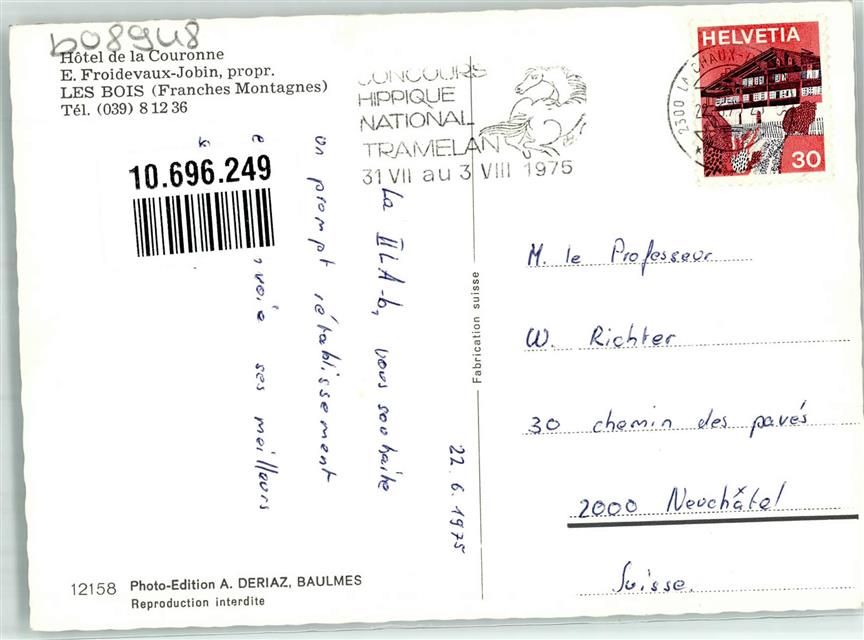 b08948
Hôtel de la Couronne
E. Froidevaux-Jobin, propr.
LES BOIS (Franches Montagnes)
Tél. (039) 8 12 36
10.696.249
CONCOURS
HIPPIQUE
NATIONAL
TRAMELAN
31 VII au 3 VIII 1975
2300 LA CHAUX-
HELVETIA
30
22. 6. 1975
La III LA-b, vous souhaite
un prompt rétablissement
ses meilleurs
Fabrication suisse
M. le Professeur
W. Richter
30 chemin des pavés
2000 Neuchâtel
Suisse.
12158 Photo-Edition A. DERIAZ, BAULMES
Reproduction interdite